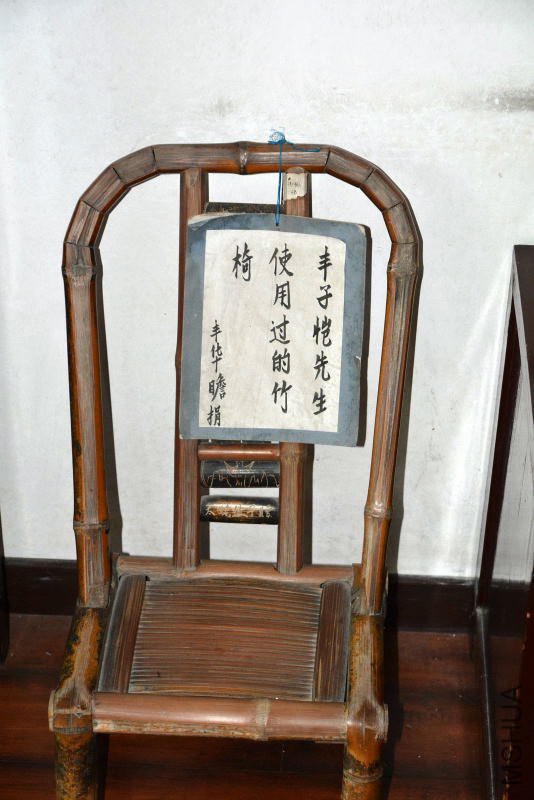 丰子恺先生
使用过的竹
椅
丰华瞻捐
MSHUA